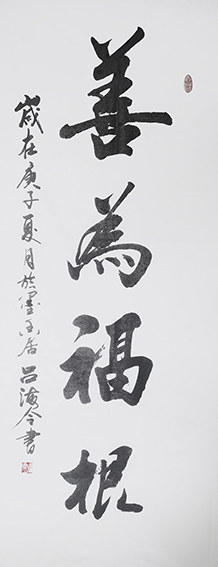 善為福根
歲在庚子夏月於墨玉居 呂海今書